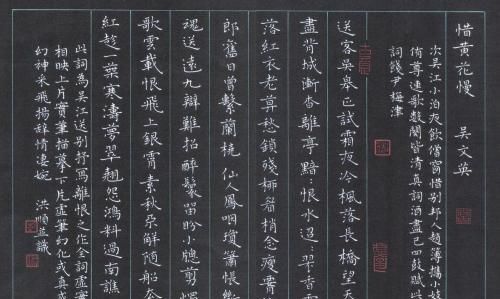 惜黄花慢 吴文英
次吴江小泊夜飲僧窗惜别邦人趙簿攜小妓
侑尊連歌數闋皆清真詞酒盡已四鼓賦此
詞餞尹梅津
送客吴皋正試霜夜冷楓落長橋望天
盡背城漸杳離亭黯黯恨水迢迢翠香零
落紅衣老暮愁鎖殘柳眉梢念瘦
郎舊日曾繫蘭橈 仙人鳳咽瓊簫悵斷
魂送遠九辯難招醉鬟留盼小牕剪燭
歌雲載恨飛上銀霄素秋不解隨船去
紅趁一葉寒濤夢翠翹怨鴻料過南譙
此詞為吴江送别抒寫離恨之作全詞虛實
相映上片實筆描摹下片虛筆幻化或真或
幻神采飛揚辞情凄婉 洪順 識